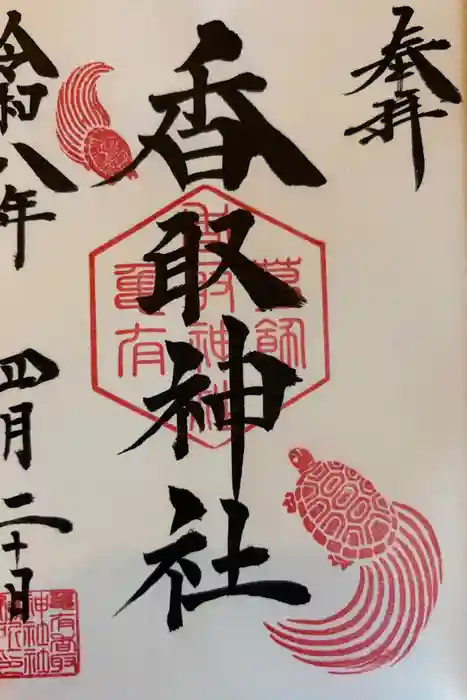 奉拝
香取神社
令和八年 四月二十日
葛飾
香取神社
亀有
亀有香取
神社